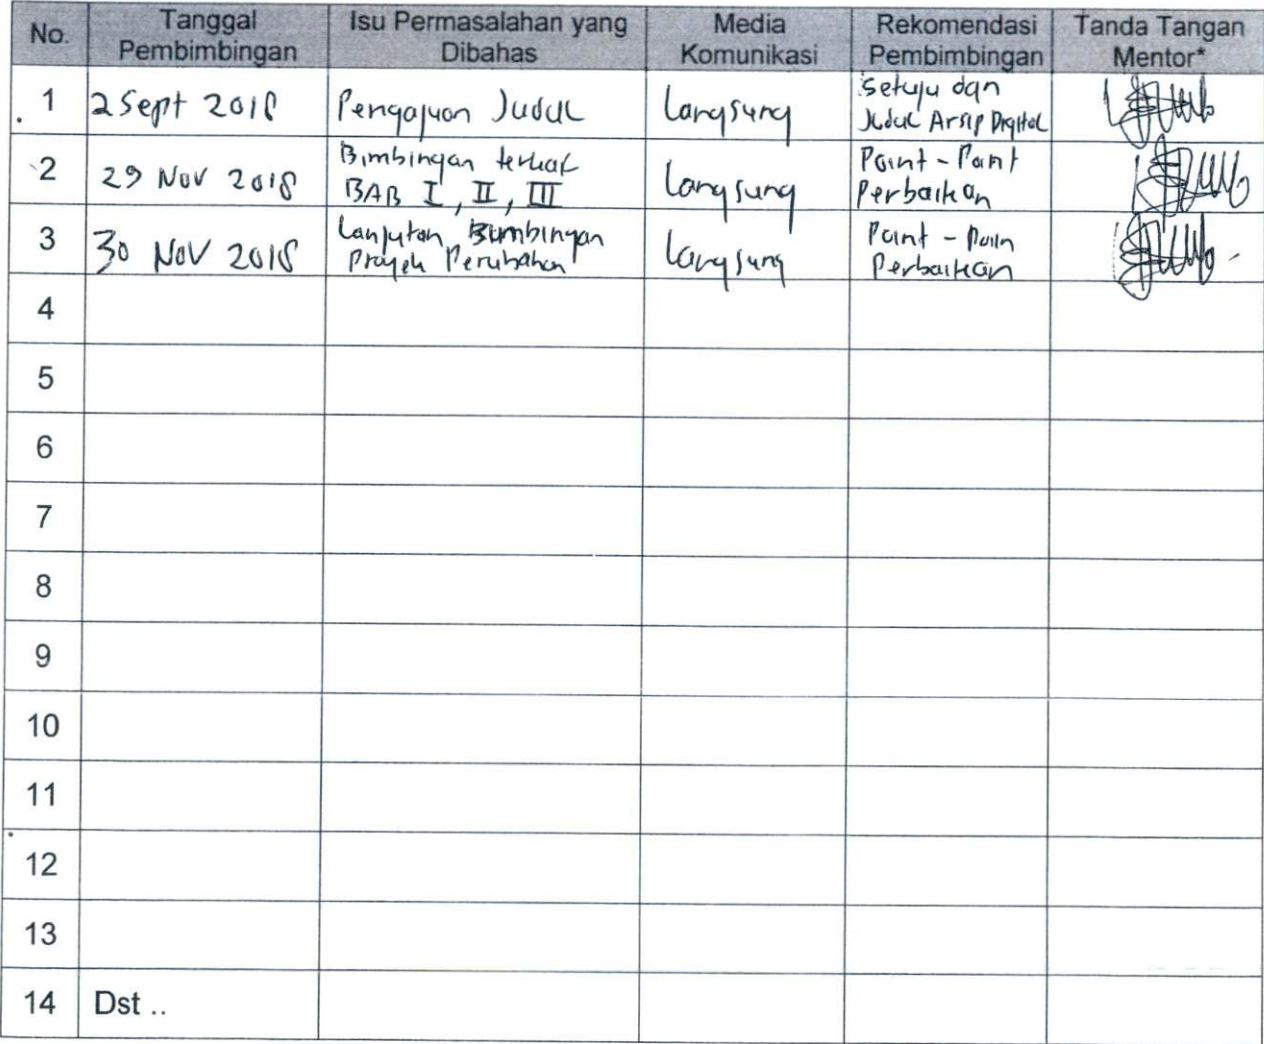 No. Tanggal Pembimbingan Isu Permasalahan yang Dibahas Media Komunikasi Rekomendasi Pembimbingan Tanda Tangan Mentor*
1 2 Sept 2018 Pengajuan Judul Langsung Setuju dgn Judul Arsip Digital
2 29 Nov 2018 Bimbingan terkait BAB I, II, III Langsung Point - Point Perbaikan
3 30 Nov 2018 Lanjutan Bimbingan Proyek Perubahan Langsung Point - Poin Perbaikan
4
5
6
7
8
9
10
11
12
13
14 Dst ..